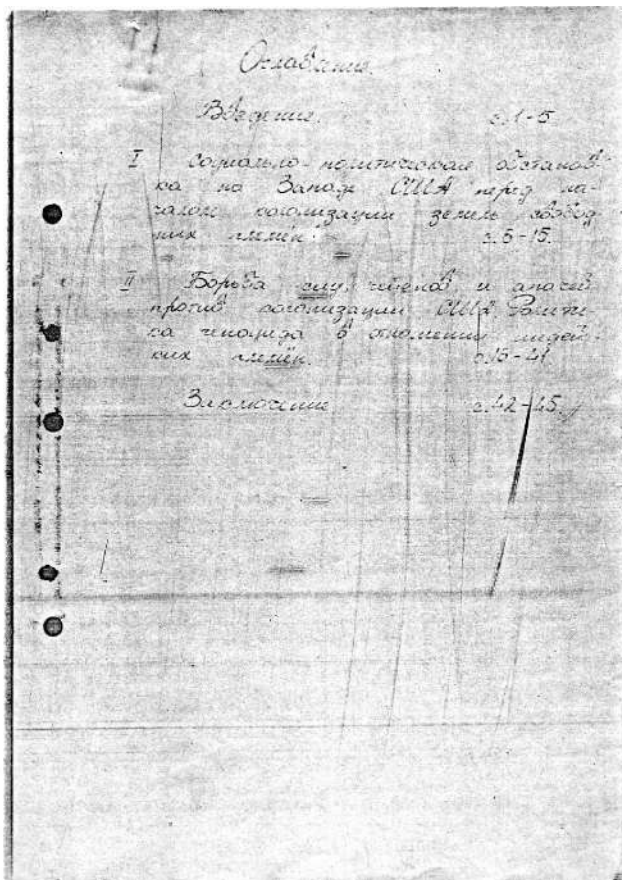 Оглавление.
Введение. с.1-5
I Социально-политическая обстанов-
ка на Западе США перед на-
чалом колонизации земель свобод-
ных племён. с.5-15.
II Борьба сиу, чиенов и апачей
против колонизации США. Полити-
ка геноцида в отношении индей-
ских племён. с.15-41
Заключение с.42-45.